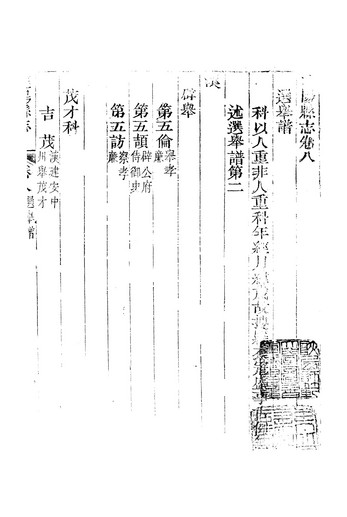 縣志卷八
選舉譜
科以人重非人重科年經月
述選舉譜第二
漢
辟舉
第五倫 舉孝廉
第五頡 辟公府侍御史
第五訪 察孝廉
茂才科
吉茂 漢建安中州舉茂才
縣志 卷八 選舉譜